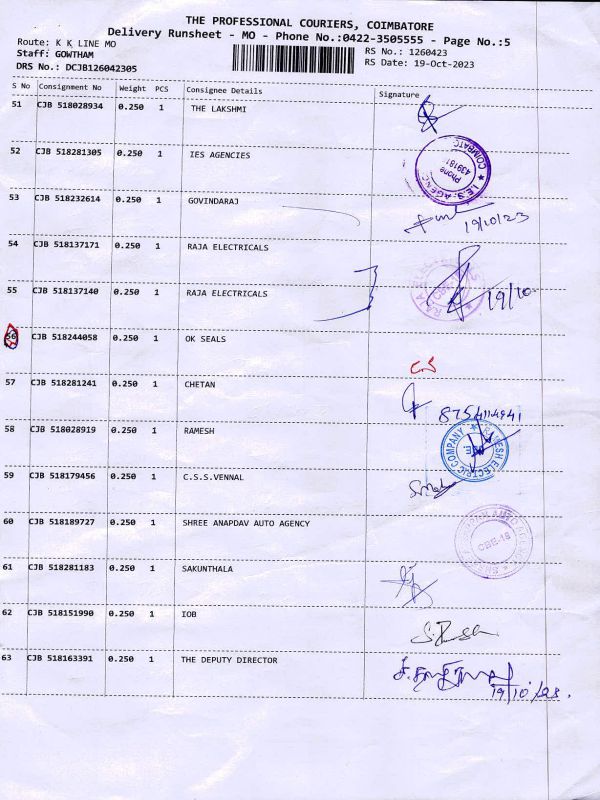 THE PROFESSIONAL COURIERS, COIMBATORE
Delivery Runsheet - MO - Phone No.:0422-3505555 - Page No.:5
Route: K K LINE MO
RS No.: 1260423
Staff: GOWTHAM
RS Date: 19-Oct-2023
DRS No.: DCJB126042305
S No Consignment No Weight PCS Consignee Details Signature
51 CJB 518028934 0.250 1 THE LAKSHMI
52 CJB 518281305 0.250 1 IES AGENCIES
COIMBATO
Phone
439181
★ I.E.S. AGENC
53 CJB 518232614 0.250 1 GOVINDARAJ
19/10/23
54 CJB 518137171 0.250 1 RAJA ELECTRICALS
55 CJB 518137140 0.250 1 RAJA ELECTRICALS
RAJA ELECTRICALS
19/10
56 CJB 518244058 0.250 1 OK SEALS
CS
57 CJB 518281241 0.250 1 CHETAN
8754114941
58 CJB 518028919 0.250 1 RAMESH
★ RAMESH ELECTRIC COMPANY
59 CJB 518179456 0.250 1 C.S.S.VENNAL
60 CJB 518189727 0.250 1 SHREE ANAPDAV AUTO AGENCY
CBE-18
61 CJB 518281183 0.250 1 SAKUNTHALA
62 CJB 518151990 0.250 1 IOB
63 CJB 518163391 0.250 1 THE DEPUTY DIRECTOR
19/10/23.